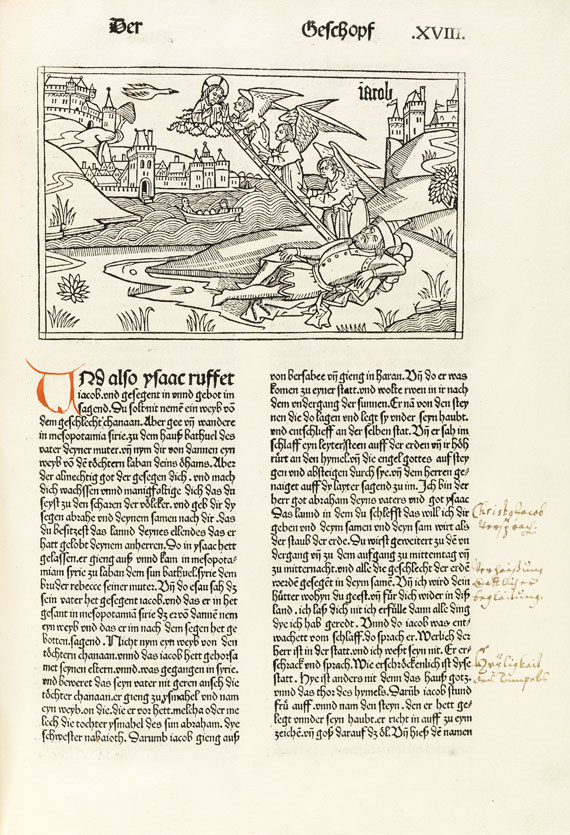 Der
Geschopf
.XVIII.
iacob
UNd also ysaac ruffet
iacob. vnd gesegent in vnnd gebot im
sagend. Du solt nit nemē ein weyb vō
dem geschlecht chanaan. Aber gee vn̄ wandere
in mesopotamia sirie. zu dem hauß bathuel des
vater deyner muter. vn̄ nym dir von dannen eyn
weyb vō dē töchtern laban deins öhams. Aber
der almechtig got der gesegen dich. vnd mach
dich wachssen vnnd manigfeltige dich das du
seyst zu den scharen der völcker. vnd geb dir dy
segen abrahe vnd deynem samen nach dir. das
du besitzest das lannd deynes ellendes das er
hatt gelobt deynem anherren. So in ysaac hett
gelassen. er gieng auß vnnd kam in mesopota-
mian syrie zu laban dem sun bathuel syrie dem
bruder rebecce seiner muter. Vn̄ do esau sah dz
sein vater het gesegent iacob. vnd das er in het
gesant in mesopotamiā sirie dz er vō danne nem
eyn weyb vnd das er im nach dem segen het ge
botten. sagend. Nicht nym eyn weyb von den
töchtern chanaan. vnnd das iacob hett gehorsa
met seynen eltern. vnnd. was gegangen in syrie.
vnd beweret das seyn vater nit geren ansech die
töchter chanaan. er gieng zu ysmahel vnd nam
eyn weyb. on die. die er vor hett. melcha oder me
lech die tochter ysmahel des sun abraham. dye
schwester nabaioth. Darumb iacob gieng auß
von bersabee vn̄ gieng in haran. Vn̄ do er was
komen zu eyner statt. vnd wolte rwen in ir nach
dem vndergang der sunnen. Er nā von den stey
nen die do lagen vnd legt sy vnder seyn haubt.
vnd entschlieff an der selben stat. Vn̄ er sah im
schlaff eyn leytern steen auff der erden vn̄ ir höh
rürt an den hymel. vn̄ die engel gottes auff stey
gen vnd absteigen durch sye. vn̄ dem herren ge-
naiget auff dy layter sagend zu im. Ich bin der
herr got abraham deyns vaters vnd got ysaac
Das lannd in dem du schleffst das will ich dir
geben vnd deyn samen vnd deyn sam wirt als
der staub der erde. Du wirst geweitert zu dē vn
dergang vn̄ zu dem aufgang zu mitterntag vn̄
zu mitternacht. vnd alle die geschlecht der erdē
werdē gesegēt in deyn samē. Vn̄ ich wird dein
hütter wohyn du geest. vn̄ für dich wider in diß
land. ich laß dich nit ich erfülle dann alle ding
dye ich hab geredt. Vnnd do iacob was ent-
wachett vom schlaff. do sprach er. Werlich der
herr ist in der statt. vnd ich weyst seyn nit. Er er-
schrack vnd sprach. Wie erschröckenlich ist dyse
statt. Hye ist anders nit denn das hauß gotz.
vnnd das thor des hymels. Darūb iacob stund
frü auff. vnnd nam den steyn. den er hett ge-
legt vnnder seyn haubet. er richt in auff zu eym
zeichē. vn̄ goß darauf dz öl. Vn̄ hieß dē namen